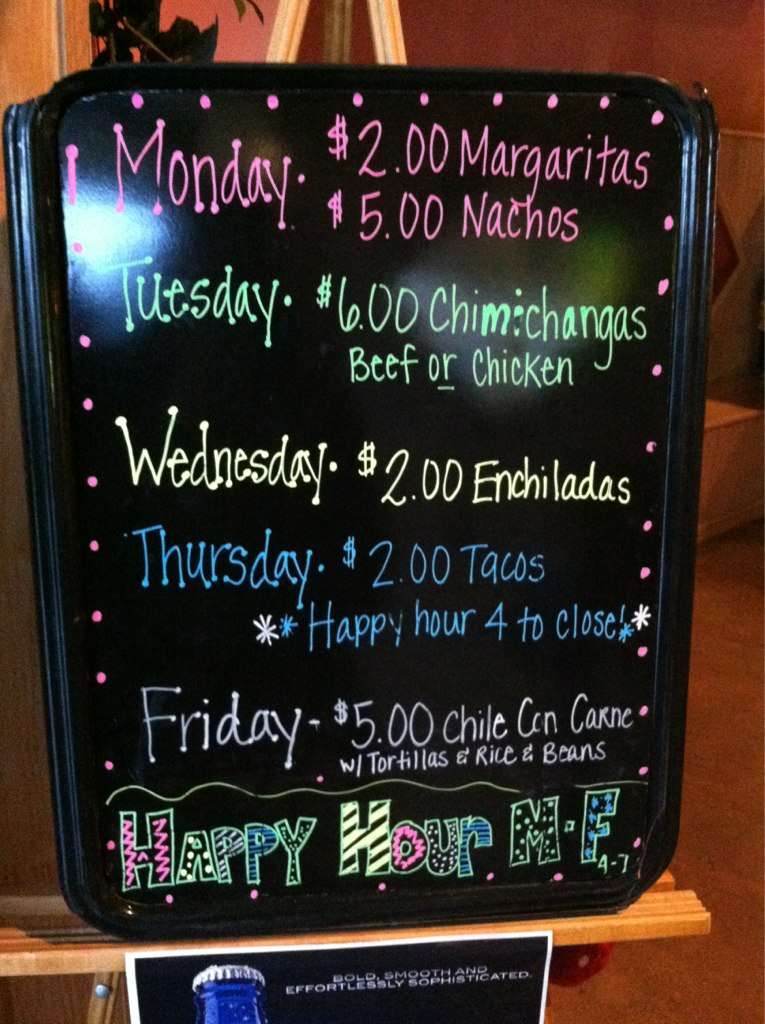 Monday. $2.00 Margaritas
$5.00 Nachos
Tuesday. $6.00 Chimichangas
Beef or Chicken
Wednesday. $2.00 Enchiladas
Thursday. $2.00 Tacos
** Happy hour 4 to close! **
Friday - $5.00 Chile Con Carne
w/ Tortillas & Rice & Beans
Happy Hour M-F
4-7
BOLD, SMOOTH AND
EFFORTLESSLY SOPHISTICATED.